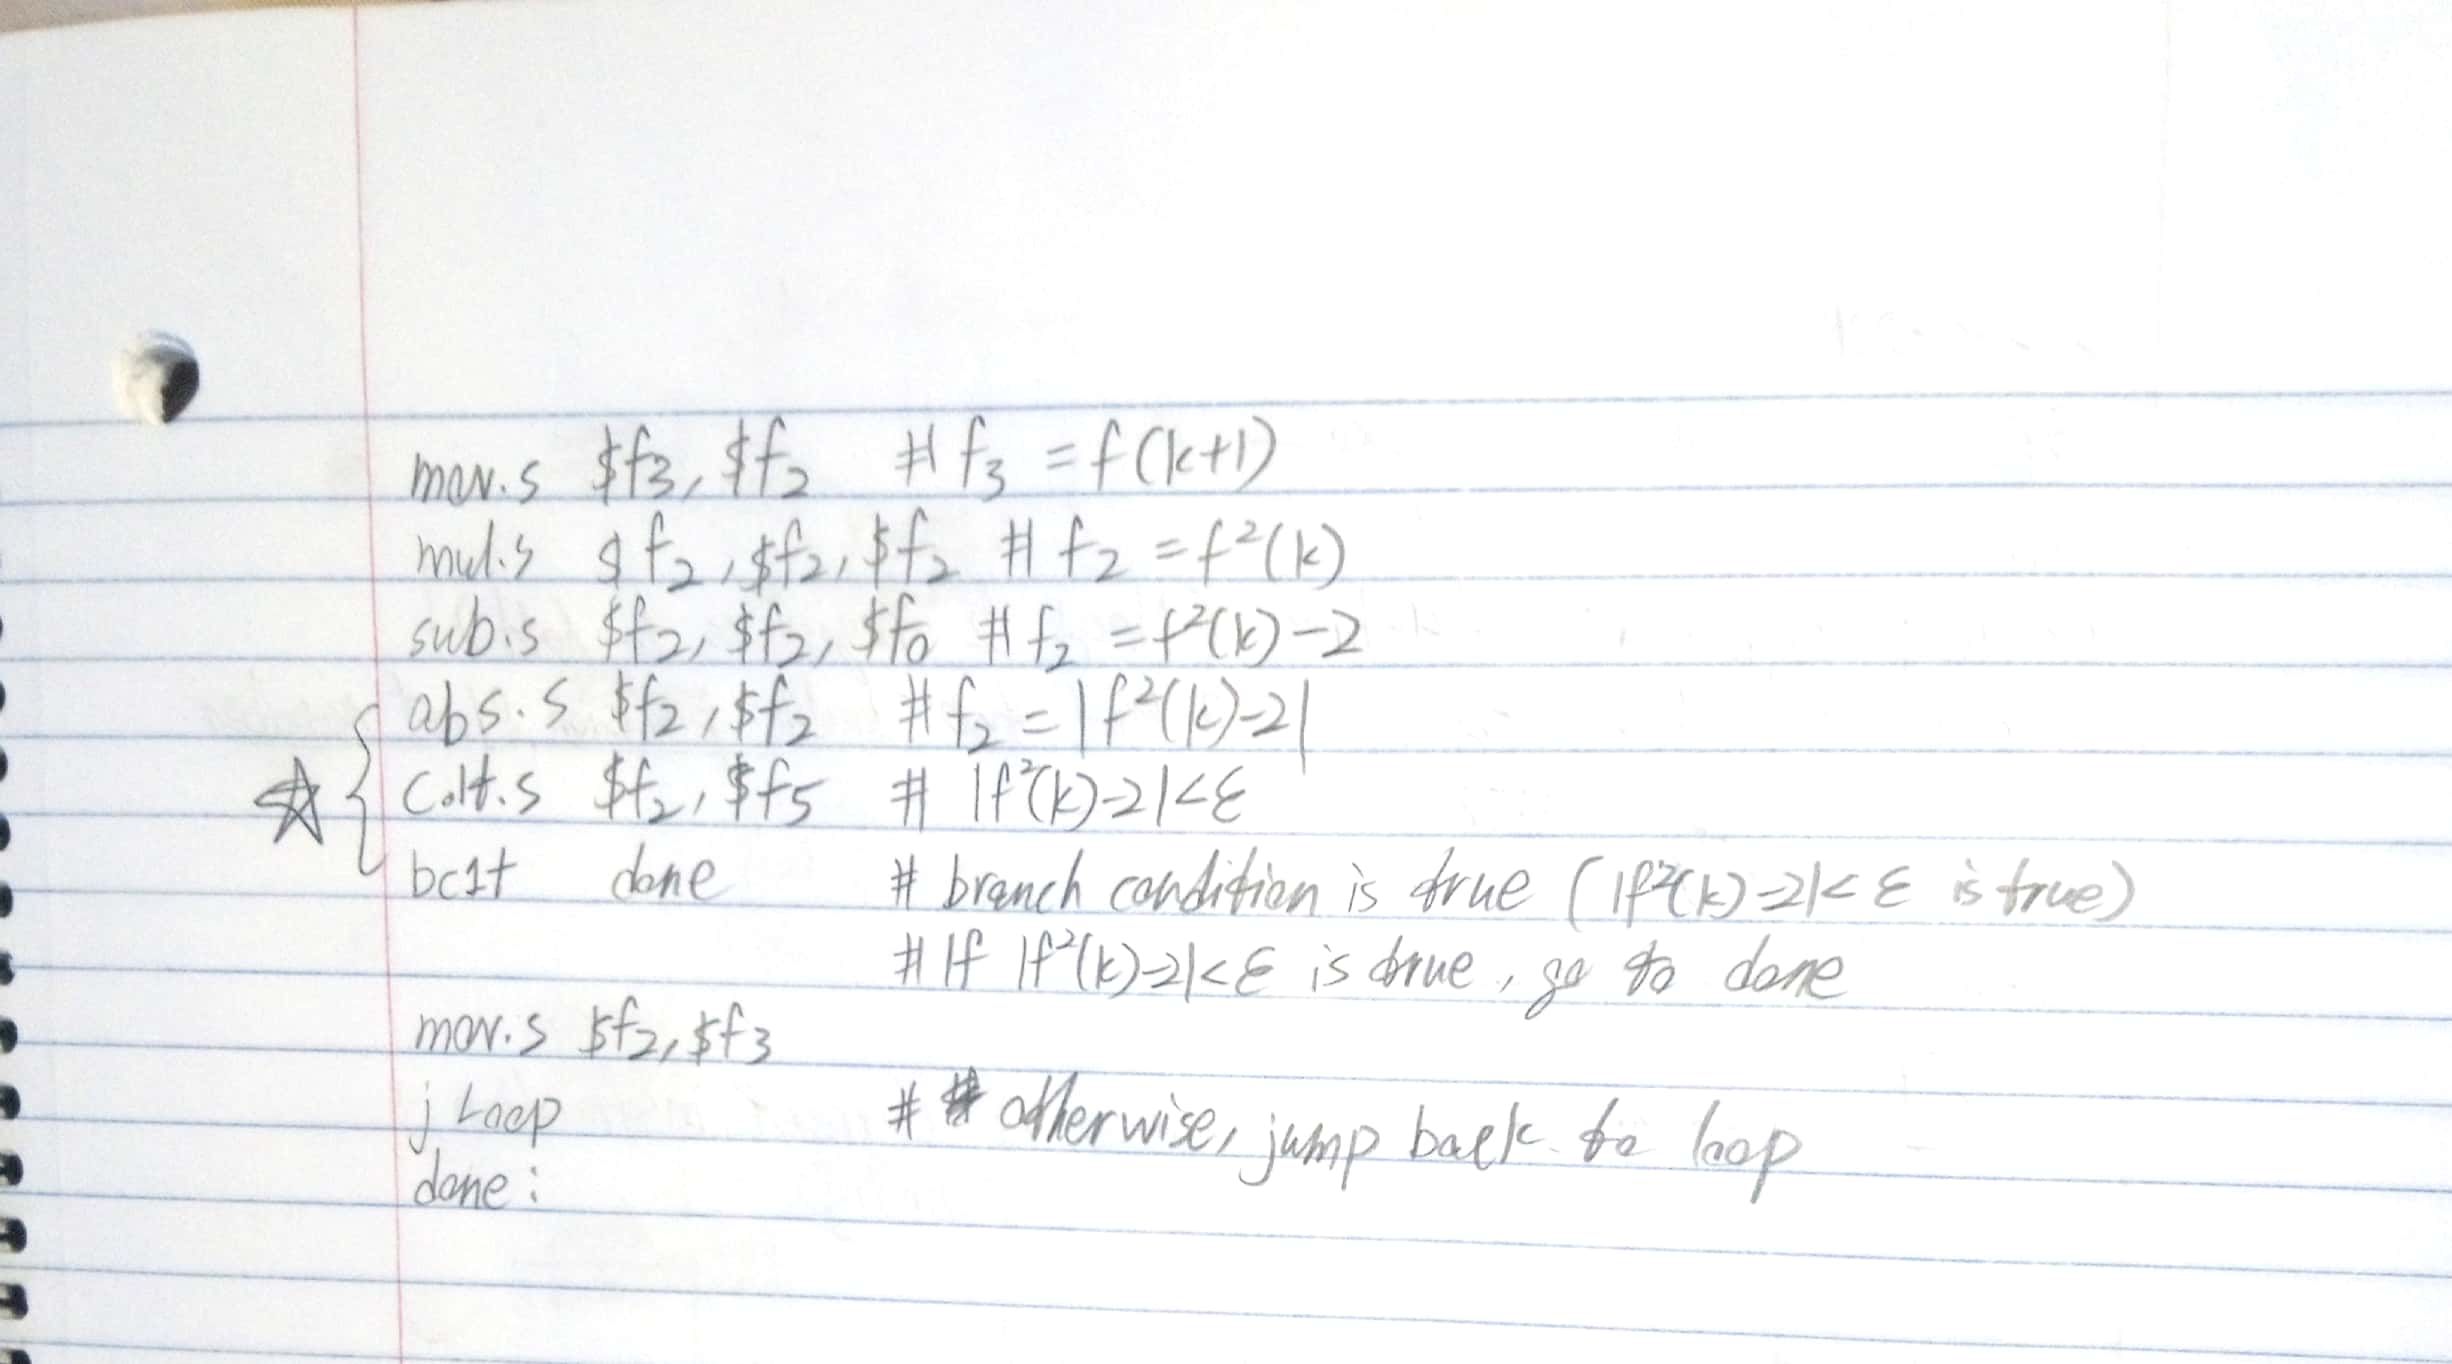 mov.s $f3, $f2 # f3 = f(k+1)
mul.s $f2, $f2, $f2 # f2 = f²(k)
sub.s $f2, $f2, $f0 # f2 = f²(k)-2
abs.s $f2, $f2 # f2 = |f²(k)-2|
c.lt.s $f2, $f5 # |f²(k)-2|<ε
bc1t done # branch condition is true (|f²(k)-2|<ε is true)
# If |f²(k)-2|<ε is true, go to done
mov.s $f2, $f3
j Loop # # otherwise, jump back to loop
done: